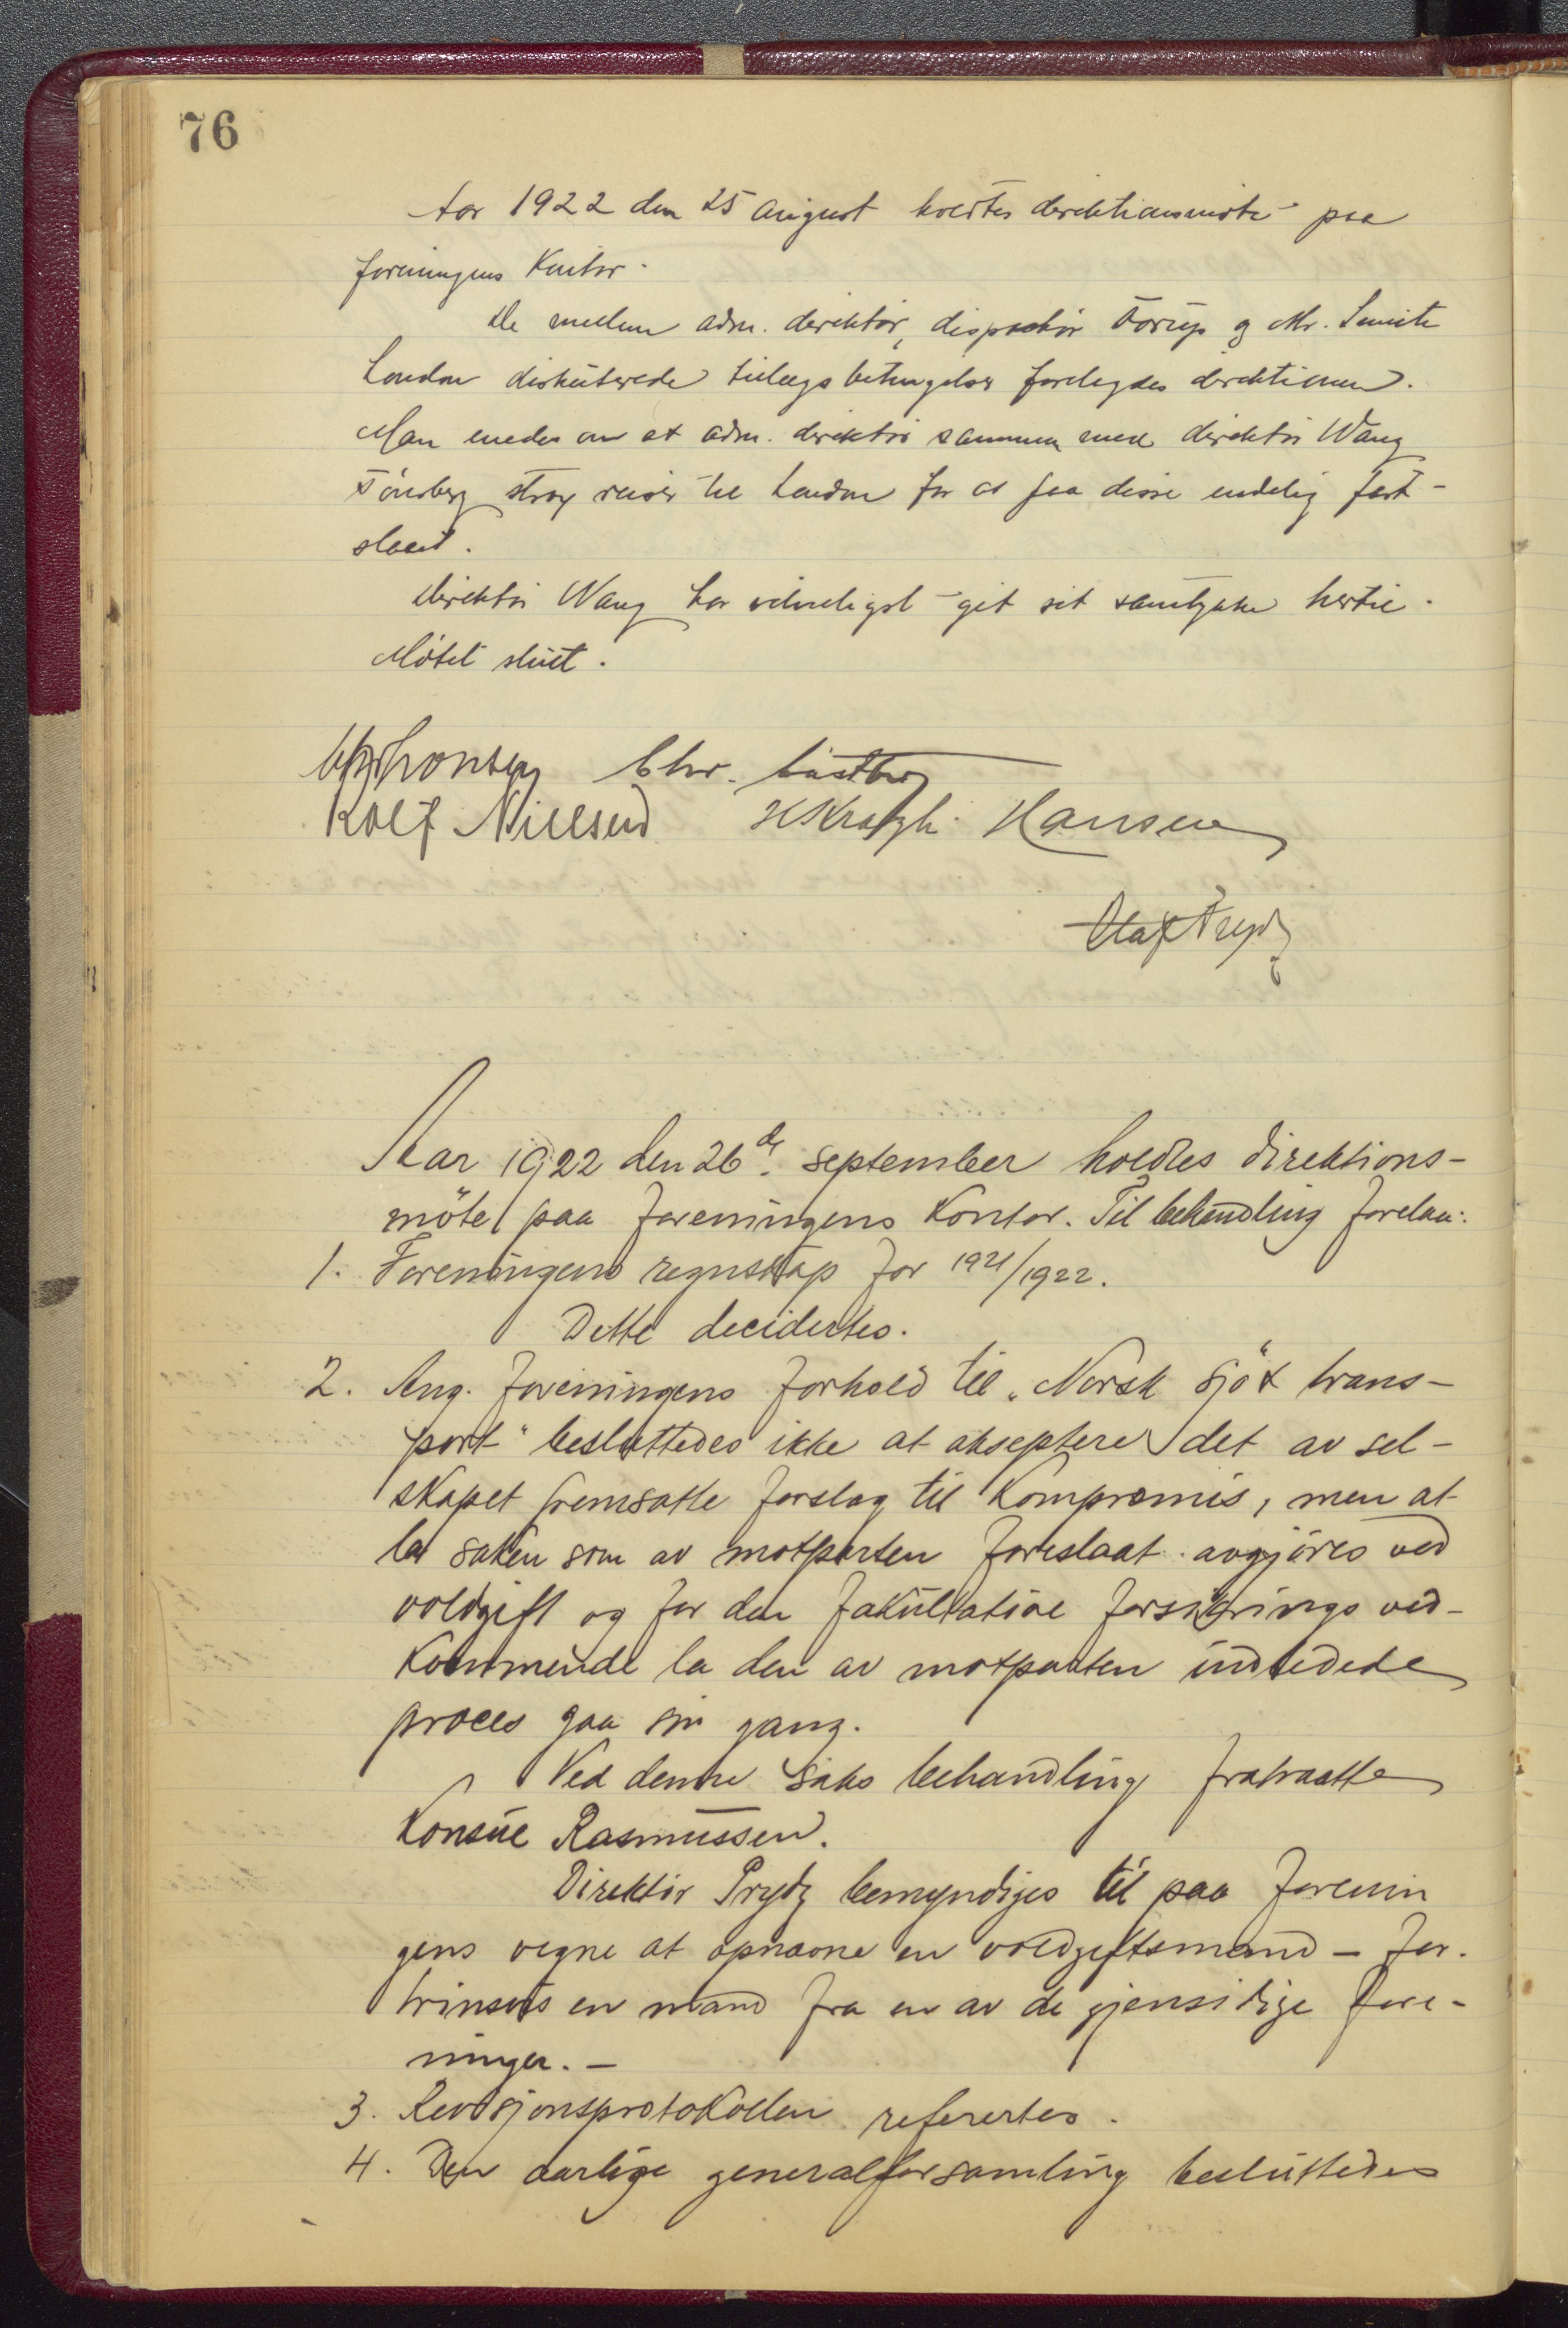 76
Aar 1922 den 25 august holdtes direktionsmøte paa
foreningens Kontor.
De mellem adm. direktør, dispachør Torup og Mr. Smith
London diskuterede tillægsbetingelser forelagdes direktionen.
Man enedes om at adm. direktør sammen med direktør Wang
Tönsberg strax reiser til London for at faa disse endelig fast-
slaat.
Direktør Wang har velvilligst git sit samtykke hertil.
Møtet slut.
Chr. Lastberg
Rolf Nielsen H Kragh Hansen
Olaf Prydz
Aar 1922 den 26de september holdtes direktions-
möte paa foreningens Kontor. Til behandling forelaa:
1. Foreningens regnskap for 1921/1922.
Dette decidertes.
2. Ang. foreningens forhold til "Norsk Sjö & trans-
port" besluttedes ikke at akseptere det av sel-
skapet fremsatte forslag til Kompromis, men at
la saken som av motparten foreslaat avgjöres ved
voldgift og for den fakultative forsikrings ved-
Kommende la den av motparten indledede
proces gaa sin gang.
Ved denne saks behandling fratraatte
Konsul Rasmussen.
Direktör Prydz bemyndiges til paa forenin
gens vegne at opnævne en voldgiftsmand - for-
trinsvis en mand fra en av de gjensidige fore-
ninger. -
3. Revisjonsprotokollen refererte.
4. Den aarlige generalforsamling besluttedes